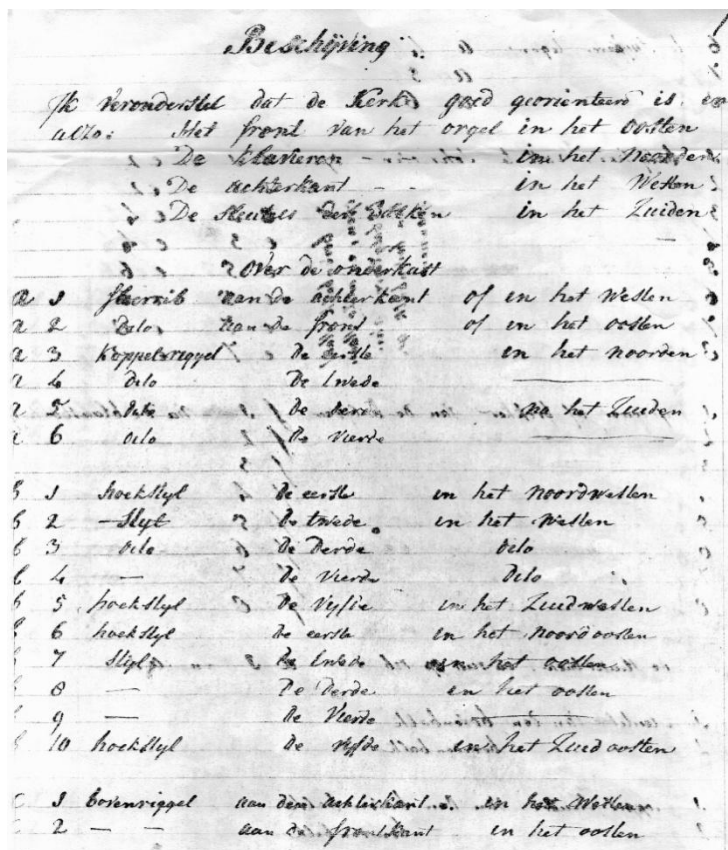 Beschijving
Ik veronderstel dat de Kerk goed georienteerd is en
alzo: Het front van het orgel in het oosten
De klavieren in het Noorden
De achterkant - - in het Westen
De sleutels der Balken in het Zuiden
Over de onderkast
a 1 aan de achterkant of in het Westen
a 2 Dito aan de front of in het oosten
a 3 Koppelriggel De eerste in het noorden
a 4 dito De twede
a 5 dito de derde na het Zuiden
a 6 dito de vierde
b 1 hoekstyl de eerste in het noordwesten
b 2 - Styl de twede in het Westen
b 3 dito de Derde dito
b 4 — de Vierde dito
b 5 hoekstyl de Vyfde in het Zuidwesten
b 6 hoekstyl de eerste in het noordoosten
b 7 Styl de twede in het oosten
b 8 — De Derde in het oosten
b 9 — de Vierde —
b 10 hoekstyl de vyfde in het Zuidoosten
C 1 bovenriggel aan den achterkant in het Westen
C 2 — — aan de frontkant in het oosten